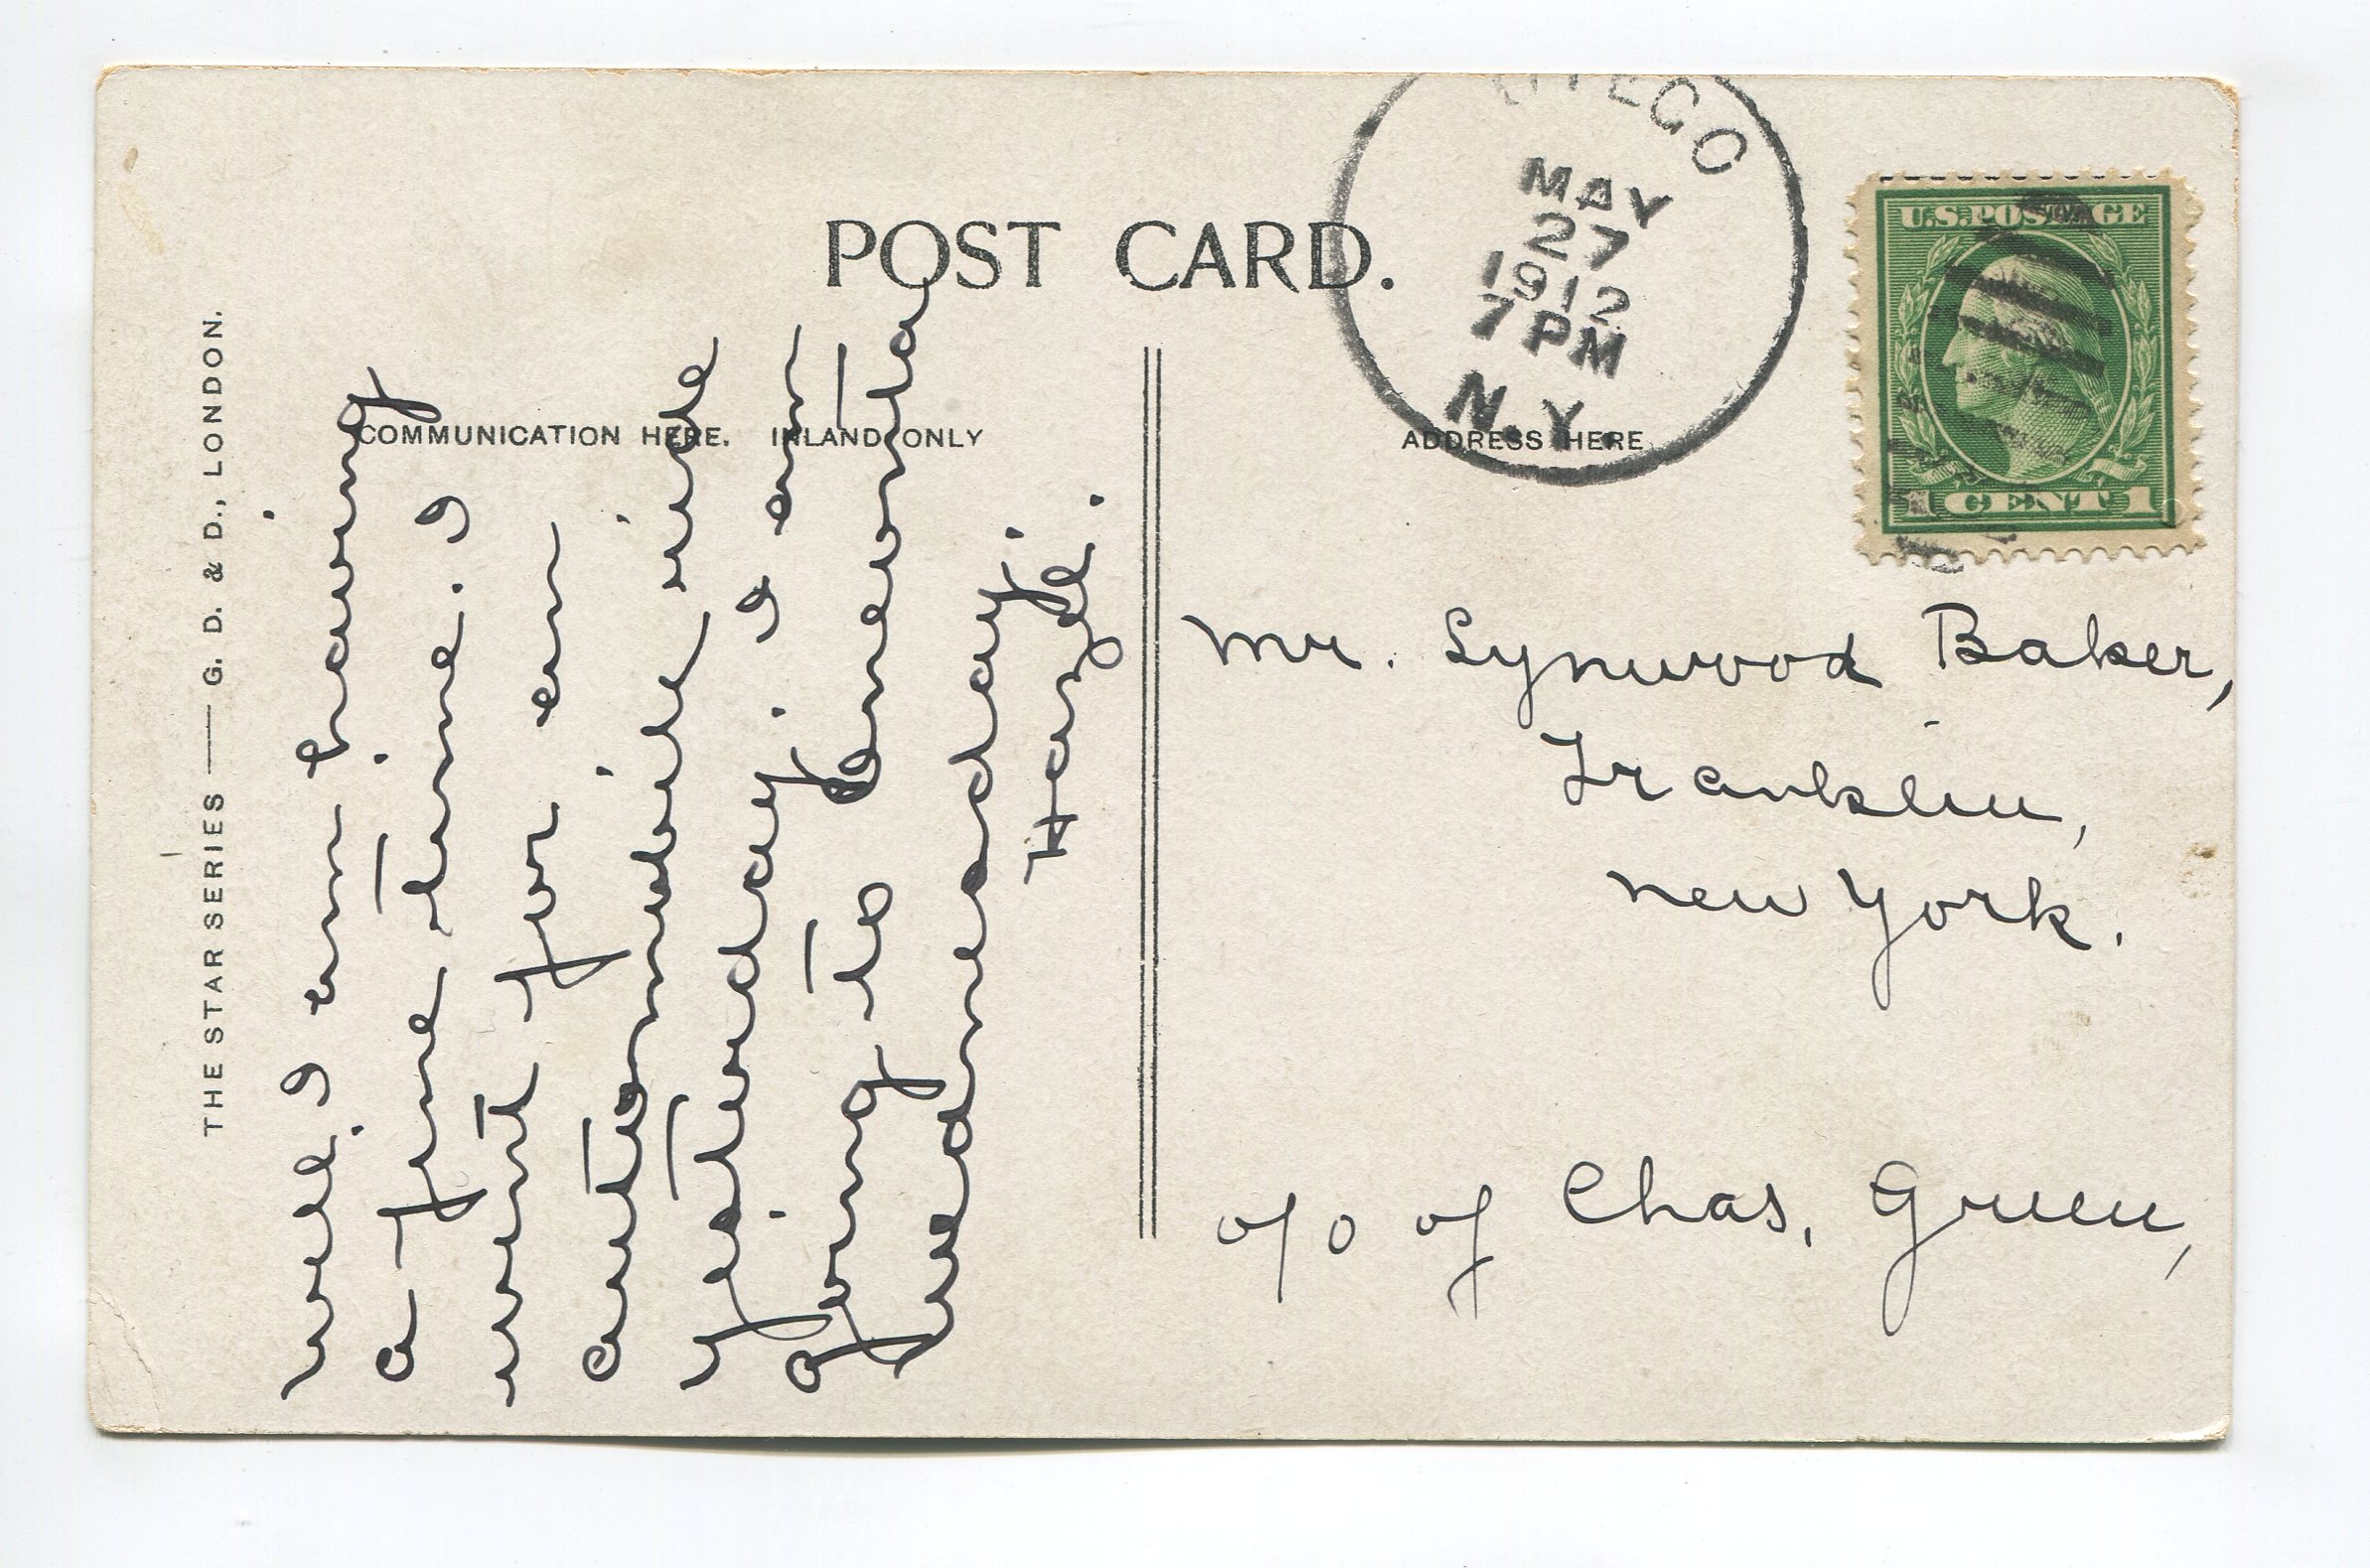 THE STAR SERIES — G. D. & D., LONDON.
POST CARD.
COMMUNICATION HERE. INLAND ONLY
ADDRESS HERE
MAY
27
1912
7 PM
N.Y.
U.S. POSTAGE
1 CENT 1
Well, I am having
a fine time. I
went for an
automobile ride
yesterday. I am
going to Oneonta
Wednesday.
Hazel.
Mr. Lynwood Baker,
Franklin,
New York.
c/o of Chas. Green,